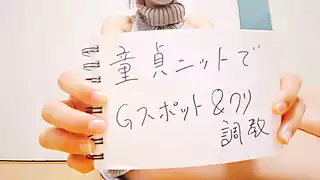 童貞ニットで
Gスポット&クリ
調教